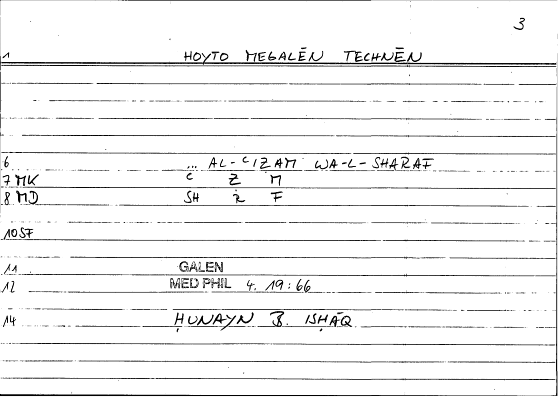 3
1 HOYTO MEGALĒN TECHNĒN
6 ... AL-ᶜIZAM WA-L-SHARAF
7 MK C Z M
8 MD SH R F
10 SF
11 GALEN
12 MED PHIL 4. 19:66
14 ḤUNAYN B. ISḤĀQ